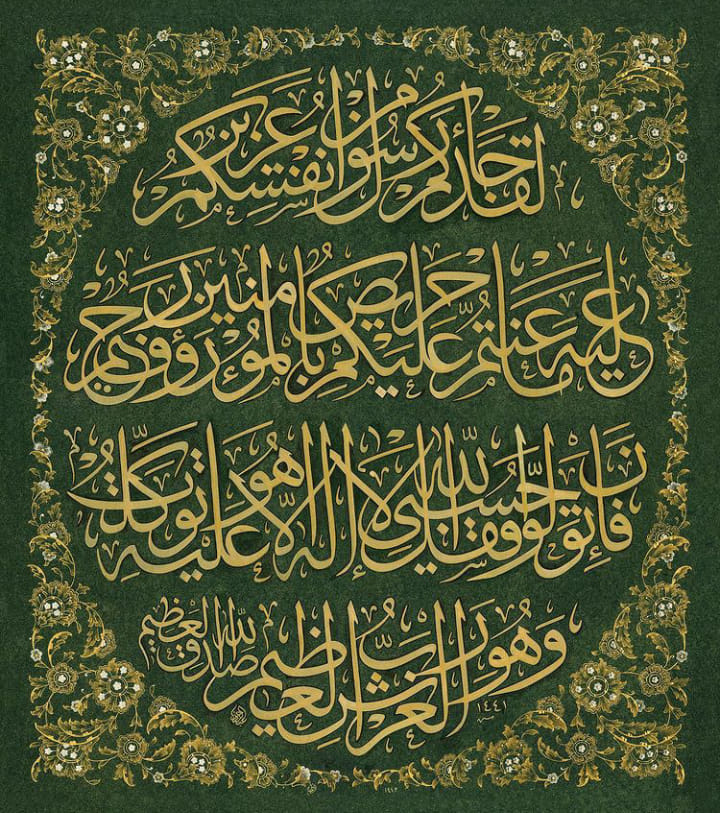 لَقَدْ جَاءَكُمْ رَسُولٌ مِنْ أَنْفُسِكُمْ عَزِيزٌ
عَلَيْهِ مَا عَنِتُّمْ حَرِيصٌ عَلَيْكُمْ بِالْمُؤْمِنِينَ رَؤُوفٌ رَحِيمٌ
فَإِنْ تَوَلَّوْا فَقُلْ حَسْبِيَ اللَّهُ لَا إِلَهَ إِلَّا هُوَ عَلَيْهِ تَوَكَّلْتُ
وَهُوَ رَبُّ الْعَرْشِ الْعَظِيمِ صَدَقَ اللَّهُ الْعَظِيمُ
١٤٤١